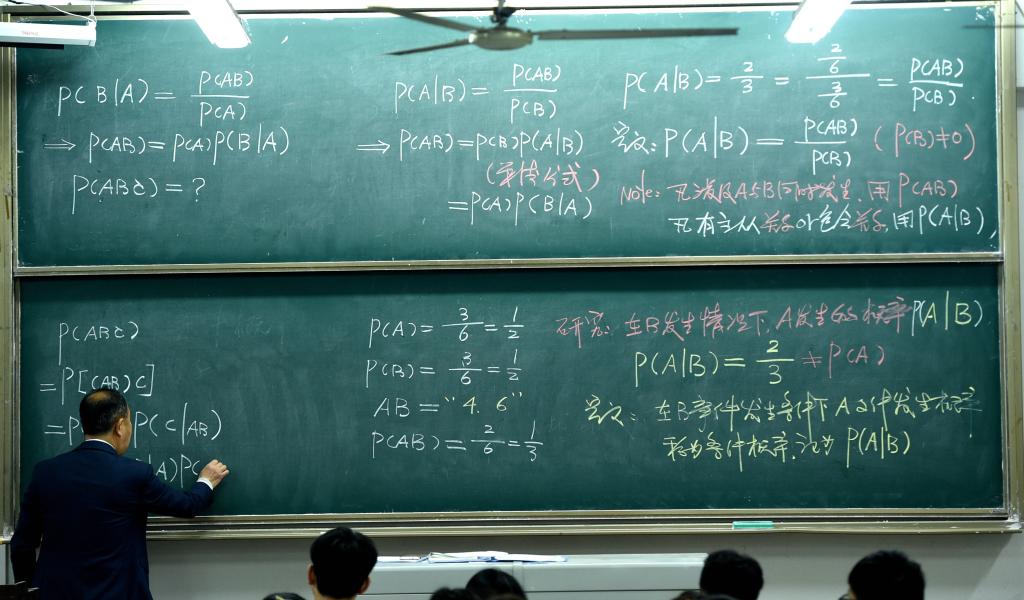 P(B|A) = P(AB)/P(A)
⟹ P(AB) = P(A)P(B|A)
P(ABC) = ?
P(A|B) = P(AB)/P(B)
⟹ P(AB) = P(B)P(A|B)
(乘法公式)
= P(A)P(B|A)
P(A|B) = 2/3 = (2/6)/(3/6) = P(AB)/P(B).
定义: P(A|B) = P(AB)/P(B) (P(B)≠0)
Note: 凡涉及A与B同时发生, 用 P(AB)
凡有主从关系or包含关系, 用P(A|B),
P(ABC)
= P[(AB)C]
= P P(C|AB)
|A)P(
P(A) = 3/6 = 1/2
P(B) = 3/6 = 1/2
AB = "4. 6"
P(AB) = 2/6 = 1/3
研究: 在B发生情况下, A发生的概率P(A|B)
P(A|B) = 2/3 ≠ P(A)
定义: 在B事件发生条件下A事件发生概率
称为条件概率, 记为 P(A|B)